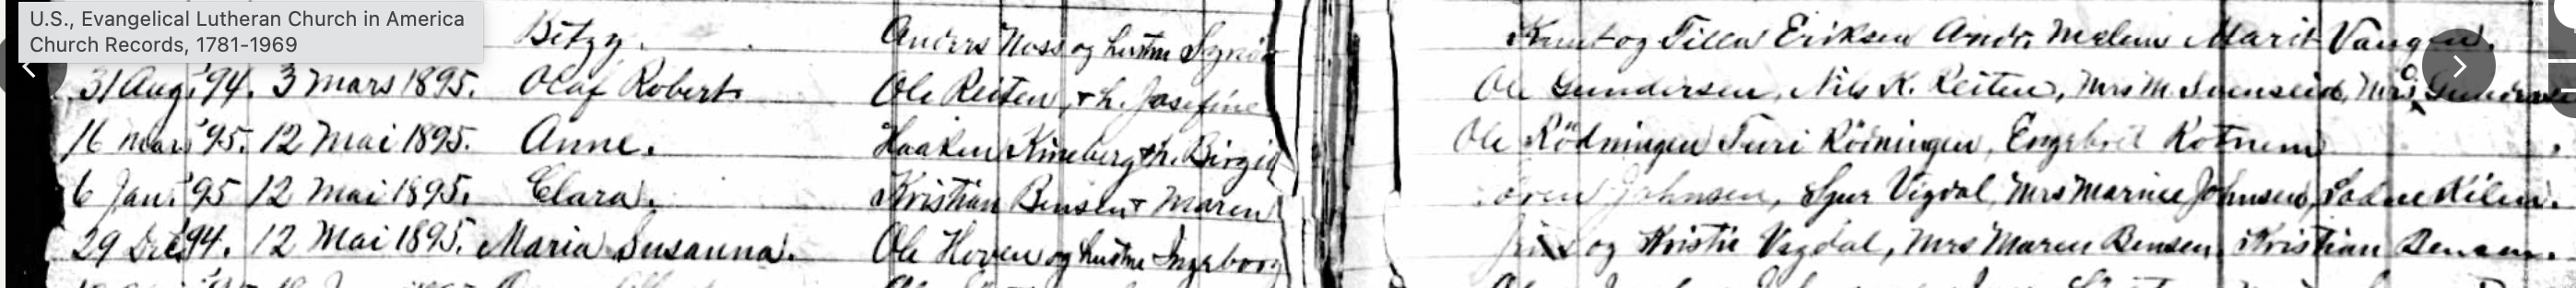 U.S., Evangelical Lutheran Church in America
Church Records, 1781-1969
Betzy. Anders Moss og hustru Sigrid Knut og Tilla Eriksen Andr. Melum Marit Vangen.
31 Aug. '94. 3 Mars 1895. Olaf Robert Ole Reiten + h. Josefine Ole Gundersen, Nils K. Reiten, Mrs M. Mrs
16 mars '95. 12 Mai 1895. Anne. Haaken Kineberg + h. Birgit Ole Rödningen Turi Rödningen, Engebret Rotnem
6 Jan. '95 12 Mai 1895. Clara. Kristian Bensen + Maren Johnsen, Sjur Vigdal, Mrs Marine Johnsen, Kilen.
29 Dec '94. 12 Mai 1895. Maria Susanna. Ole Hoven og hustru Ingeborg og Kristie Vigdal, Mrs Maren Bensen, Kristian Bensen.